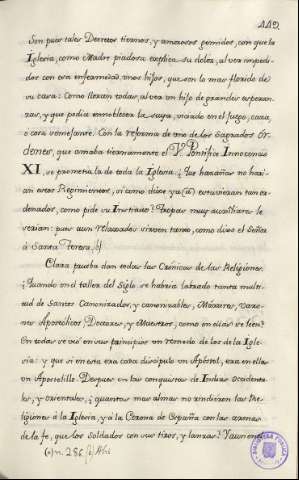 112.
Son pues tales Decretos tiernos, y amorosos gemidos, con que la
Iglesia, como Madre piadosa explica su dolor, al ver impedi-
dos con esa enfermedad unos hijos, que son lo mas florido de
su casa: Como lloran todas, al ver un hijo de grandes esperan-
zas, y que podia ennoblecer la suya, viciado en el juego, caza,
ò cosa semejante. Con la reforma de uno de los Sagrados Or-
denes, que amaba tiernamente el V. Pontifice Innocencio
XI, se prometia la de toda la Iglesia. ¿Que hazañas no hari-
an estos Regimientos, si como dice ya (a) estuvieran tan or-
denados, como pide su Instituto? Tropas muy auxiliares le
serian: pues aun relaxadas sirven tanto, como dixo el Señor
à Santa Teresa.
Clara prueba dan todas las Cronicas de las Religiones.
¿Quando en el taller del Siglo se habria labrado tanta multi-
tud de Santos Canonizados, y canonizables, Martires, varo-
nes Apostolicos Doctores, y Maestros, como en ellas se leen?
En todas se viò en sus principios un remedo de los de la Igle-
sia: y que si en esta cada discipulo un Apostol, era en ellas
un Apostolillo. Despues en las conquistas de Indias occidenta-
les, y orientales, ¿quantas mas almas no rindieron las Re-
ligiones à la Iglesia, y à la Corona de España con las armas
de la fe, que los Soldados con sus tiros, y lanzas? Y aun en el
(a) n. 286